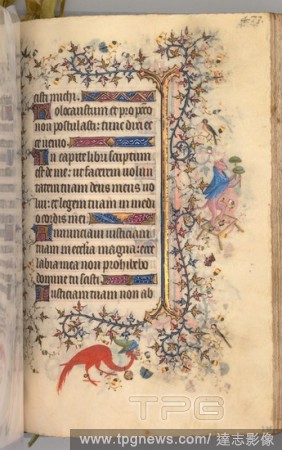 cisti michi.
Holocaustum et pro pecc
non postulasti: tunc dixi ec
ce venio.
In capite libri scriptum
est de me: ut facerem volun
tatem tuam deus meus vo
lui: et legem tuam in medi
o cordis mei.
Annunciavi iusticiam
tuam in ecclesia magna: ecce
labia mea non prohibebo
domine tu scisti.
Iusticiam tuam non ab
TPG
www.tpgnews.com/達志影像